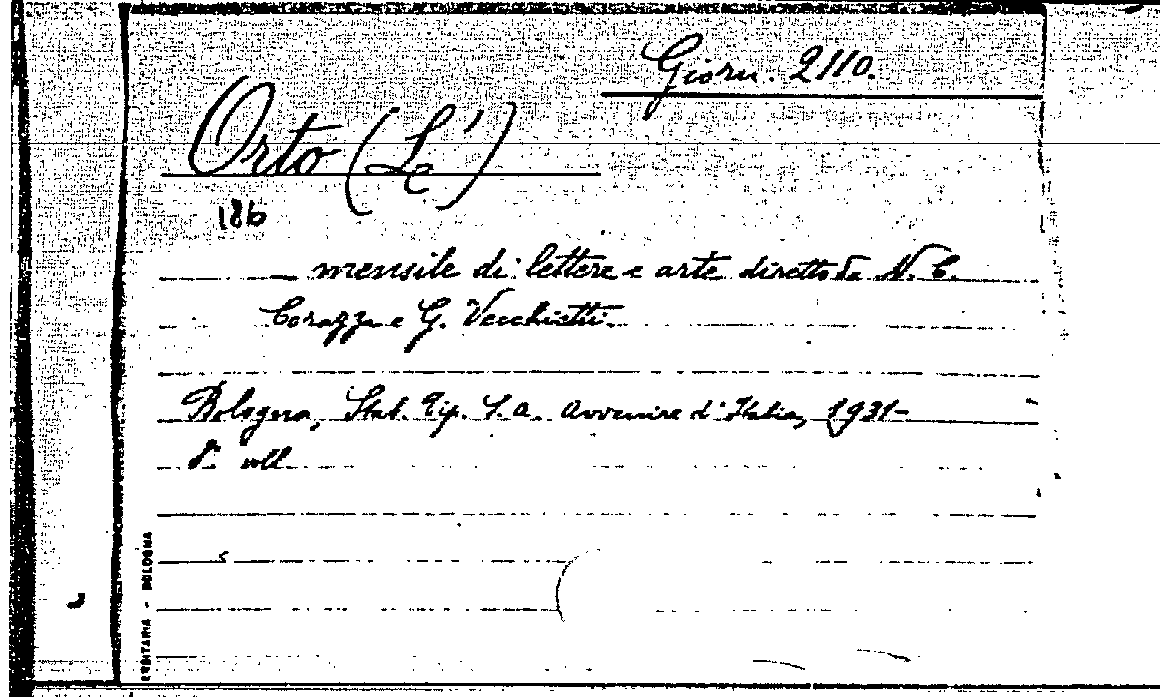 Giorn. 2110.
Orto (L')
186
— mensile di lettere e arte diretto da N. C.
Corazza e G. Vecchietti.
Bologna, Stab. Tip. S. A. Avvenire d'Italia, 1931-
8° voll.
- BOLOGNA